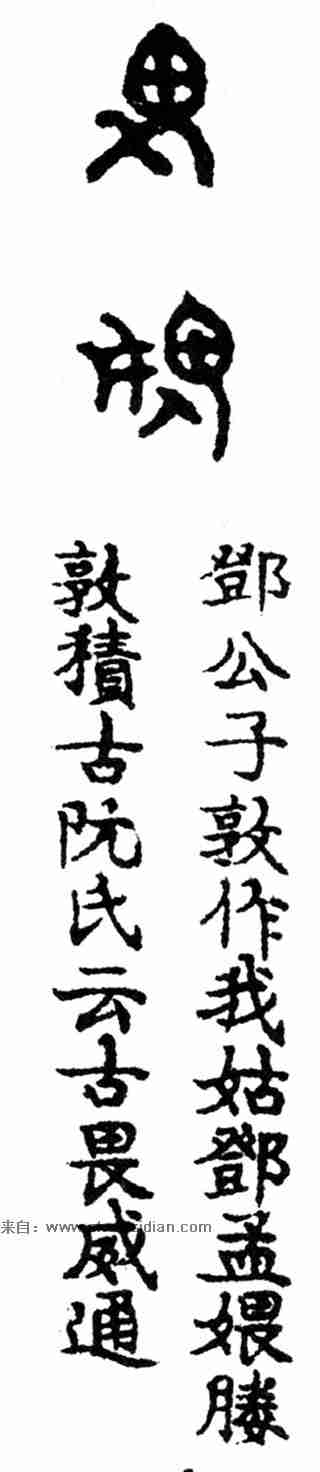 鄧公子敦作我姑鄧孟媵
敦積古阮氏云古畏威通
来自：